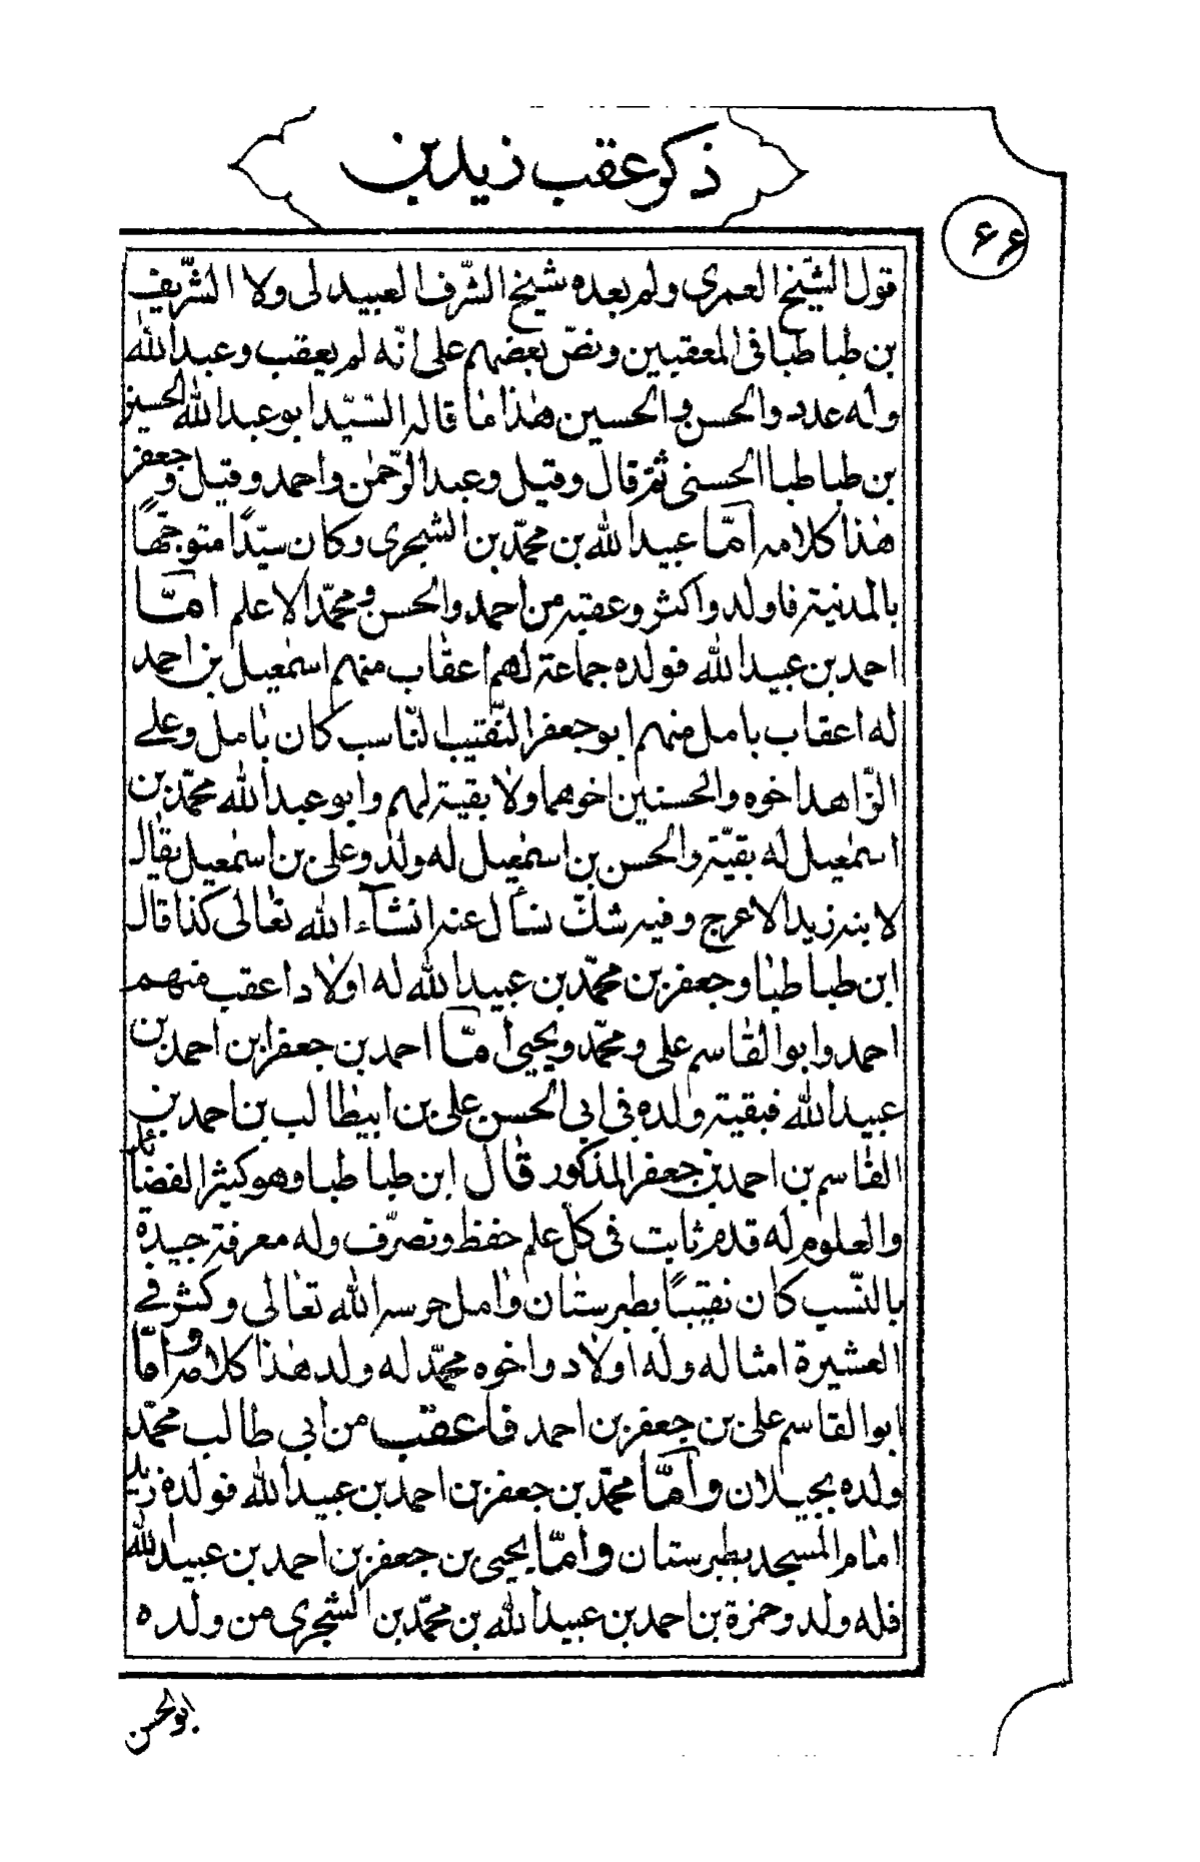 ذكر عقب زيد بن
۶۶
قول الشّيخ العمرى ولم يعده شيخ الشّرف العبيدلى ولا الشّريف
بن طباطبا فى المعقبين ونصّ بعضهم على انّه لم يعقب وعبد الله
وله عدد والحسن والحسين هٰذا ما قاله السّيّد ابو عبد الله الحسين
بن طباطبا الحسنى ثم قال وقيل وعبد الرّحمٰن واحمد وقيل وجعفر
هٰذا كلامه امّا عبيد الله بن محمّد بن الشجرى وكان سيّدًا متوجّهًا
بالمدينة فاولد واكثر وعقبه من احمد والحسن ومحمّد الاعلم امّا
احمد بن عبيد الله فولده جماعة لهم اعقاب منهم اسمٰعيل بن احمد
له اعقاب بامل منهم ابو جعفر النّقيب النّاسب كان بامل وعلى
الزّاهد اخوه والحسين اخوهما ولا بقية لهم وابو عبد الله محمّد بن
اسمٰعيل له بقيّة والحسن بن اسمٰعيل له ولد وعلى بن اسمٰعيل يقال
لابنه زيد الاعرج وفيه شكّ نسأل عنه انشآء الله تعالى كذا قال
ابن طباطبا وجعفر بن محمّد بن عبيد الله له اولاد اعقب منهم
احمد وابو القاسم على ومحمّد ويحيى امّا احمد بن جعفر ابن احمد بن
عبيد الله فبقية ولده فى ابى الحسن على بن ابيطالب بن احمد بن
القاسم بن احمد بن جعفر المذكور قال ابن طباطبا وهو كثير الفضائل
والعلوم له قدم ثابت فى كل علم حفظ وتصرّف وله معرفة جيدة
بالنّسب كان نقيبًا بطبرستان وامل حرسه الله تعالى وكثر فى
العشيرة امثاله وله اولاد واخوه محمّد له ولد هٰذا كلامه وامّا
ابو القاسم على بن جعفر بن احمد فاعقب من ابى طالب محمّد
ولده بجيلان وامّا محمّد بن جعفر بن احمد بن عبيد الله فولده زيد
امام المسجد بطبرستان وامّا يحيى بن جعفر بن احمد بن عبيد الله
فله ولد وحمزة بن احمد بن عبيد الله بن محمّد بن الشجرى من ولده
ابو الحسن